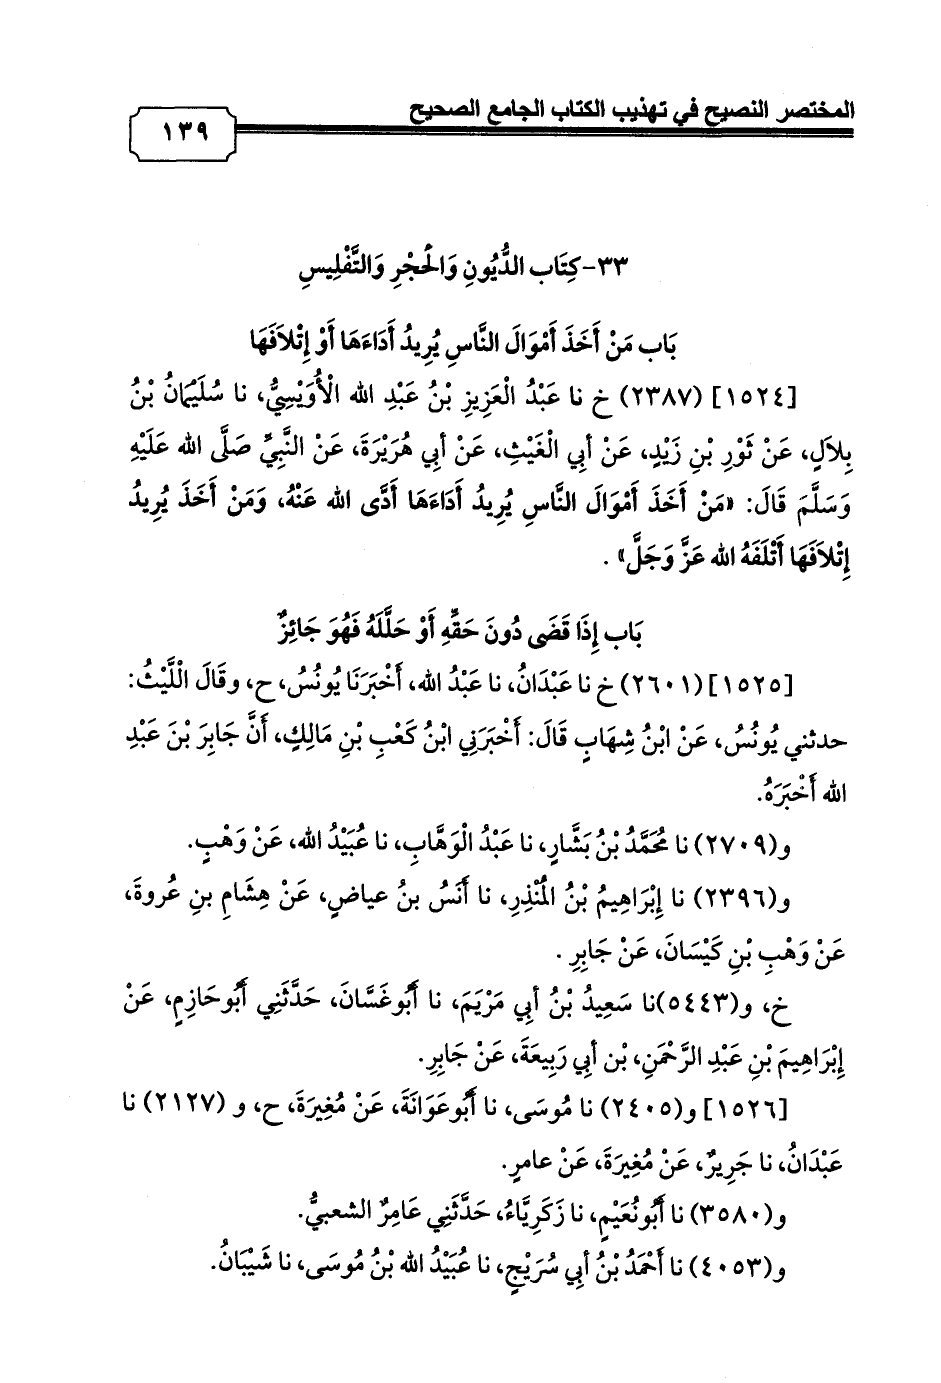 المختصر النصيح في تهذيب الكتاب الجامع الصحيح
١٣٩
٣٣- كِتَاب الدُّيُونِ وَالحَجْرِ وَالتَّفْلِيسِ
بَاب مَنْ أَخَذَ أَمْوَالَ النَّاسِ يُرِيدُ أَدَاءَهَا أَوْ إِتْلاَفَهَا
[١٥٢٤] (٢٣٨٧) خ نا عَبْدُ الْعَزِيزِ بْنُ عَبْدِ الله الْأُوَيْسِيُّ، نا سُلَيْمَانُ بْنُ
بِلاَلٍ، عَنْ ثَوْرِ بْنِ زَيْدٍ، عَنْ أبِي الْغَيْثِ، عَنْ أبِي هُرَيْرَةَ، عَنْ النَّبِيِّ صَلَّى الله عَلَيْهِ
وَسَلَّمَ قَالَ: «مَنْ أَخَذَ أَمْوَالَ النَّاسِ يُرِيدُ أَدَاءَهَا أَدَّى الله عَنْهُ، وَمَنْ أَخَذَ يُرِيدُ
إِتْلاَفَهَا أَتْلَفَهُ الله عَزَّ وَجَلَّ» .
بَاب إِذَا قَضَى دُونَ حَقِّهِ أَوْ حَلَّلَهُ فَهُوَ جَائِزٌ
[١٥٢٥] (٢٦٠١) خ نا عَبْدَانُ، نا عَبْدُ الله، أَخْبَرَنَا يُونُسُ، ح، وقَالَ اللَّيْثُ:
حدثني يُونُسُ، عَنْ ابْنُ شِهَابٍ قَالَ: أَخْبَرَنِي ابْنُ كَعْبِ بْنِ مَالِكٍ، أَنَّ جَابِرَ بْنَ عَبْدِ
الله أَخْبَرَهُ.
و(٢٧٠٩) نا مُحَمَّدُ بْنُ بَشَّارٍ، نا عَبْدُ الْوَهَّابِ، نا عُبَيْدُ الله، عَنْ وَهْبٍ.
و(٢٣٩٦) نا إِبْرَاهِيمُ بْنُ المُنْذِرِ، نا أَنَسُ بنُ عياضٍ، عَنْ هِشَامِ بنِ عُروةَ،
عَنْ وَهْبِ بْنِ كَيْسَانَ، عَنْ جَابِرِ .
خ، و(٥٤٤٣)نا سَعِيدُ بْنُ أبِي مَرْيَمَ، نا أَبُوغَسَّانَ، حَدَّثَنِي أَبُوحَازِمٍ، عَنْ
إِبْرَاهِيمَ بْنِ عَبْدِ الرَّحْمَنِ، بْن أبِي رَبِيعَةَ، عَنْ جَابِرِ.
[١٥٢٦] و(٢٤٠٥) نا مُوسَى، نا أَبُوعَوَانَةَ، عَنْ مُغِيرَةَ، ح، و (٢١٢٧) نا
عَبْدَانُ، نا جَرِيرٌ، عَنْ مُغِيرَةَ، عَنْ عامرٍ.
و(٣٥٨٠) نا أَبُونُعَيْمٍ، نا زَكَرِيَّاءُ، حَدَّثَنِي عَامِرٌ الشعبيُّ.
و(٤٠٥٣) نا أَحْمَدُ بْنُ أبِي سُرَيْجٍ، نا عُبَيْدُ الله بْنُ مُوسَى، نا شَيْبَانُ.